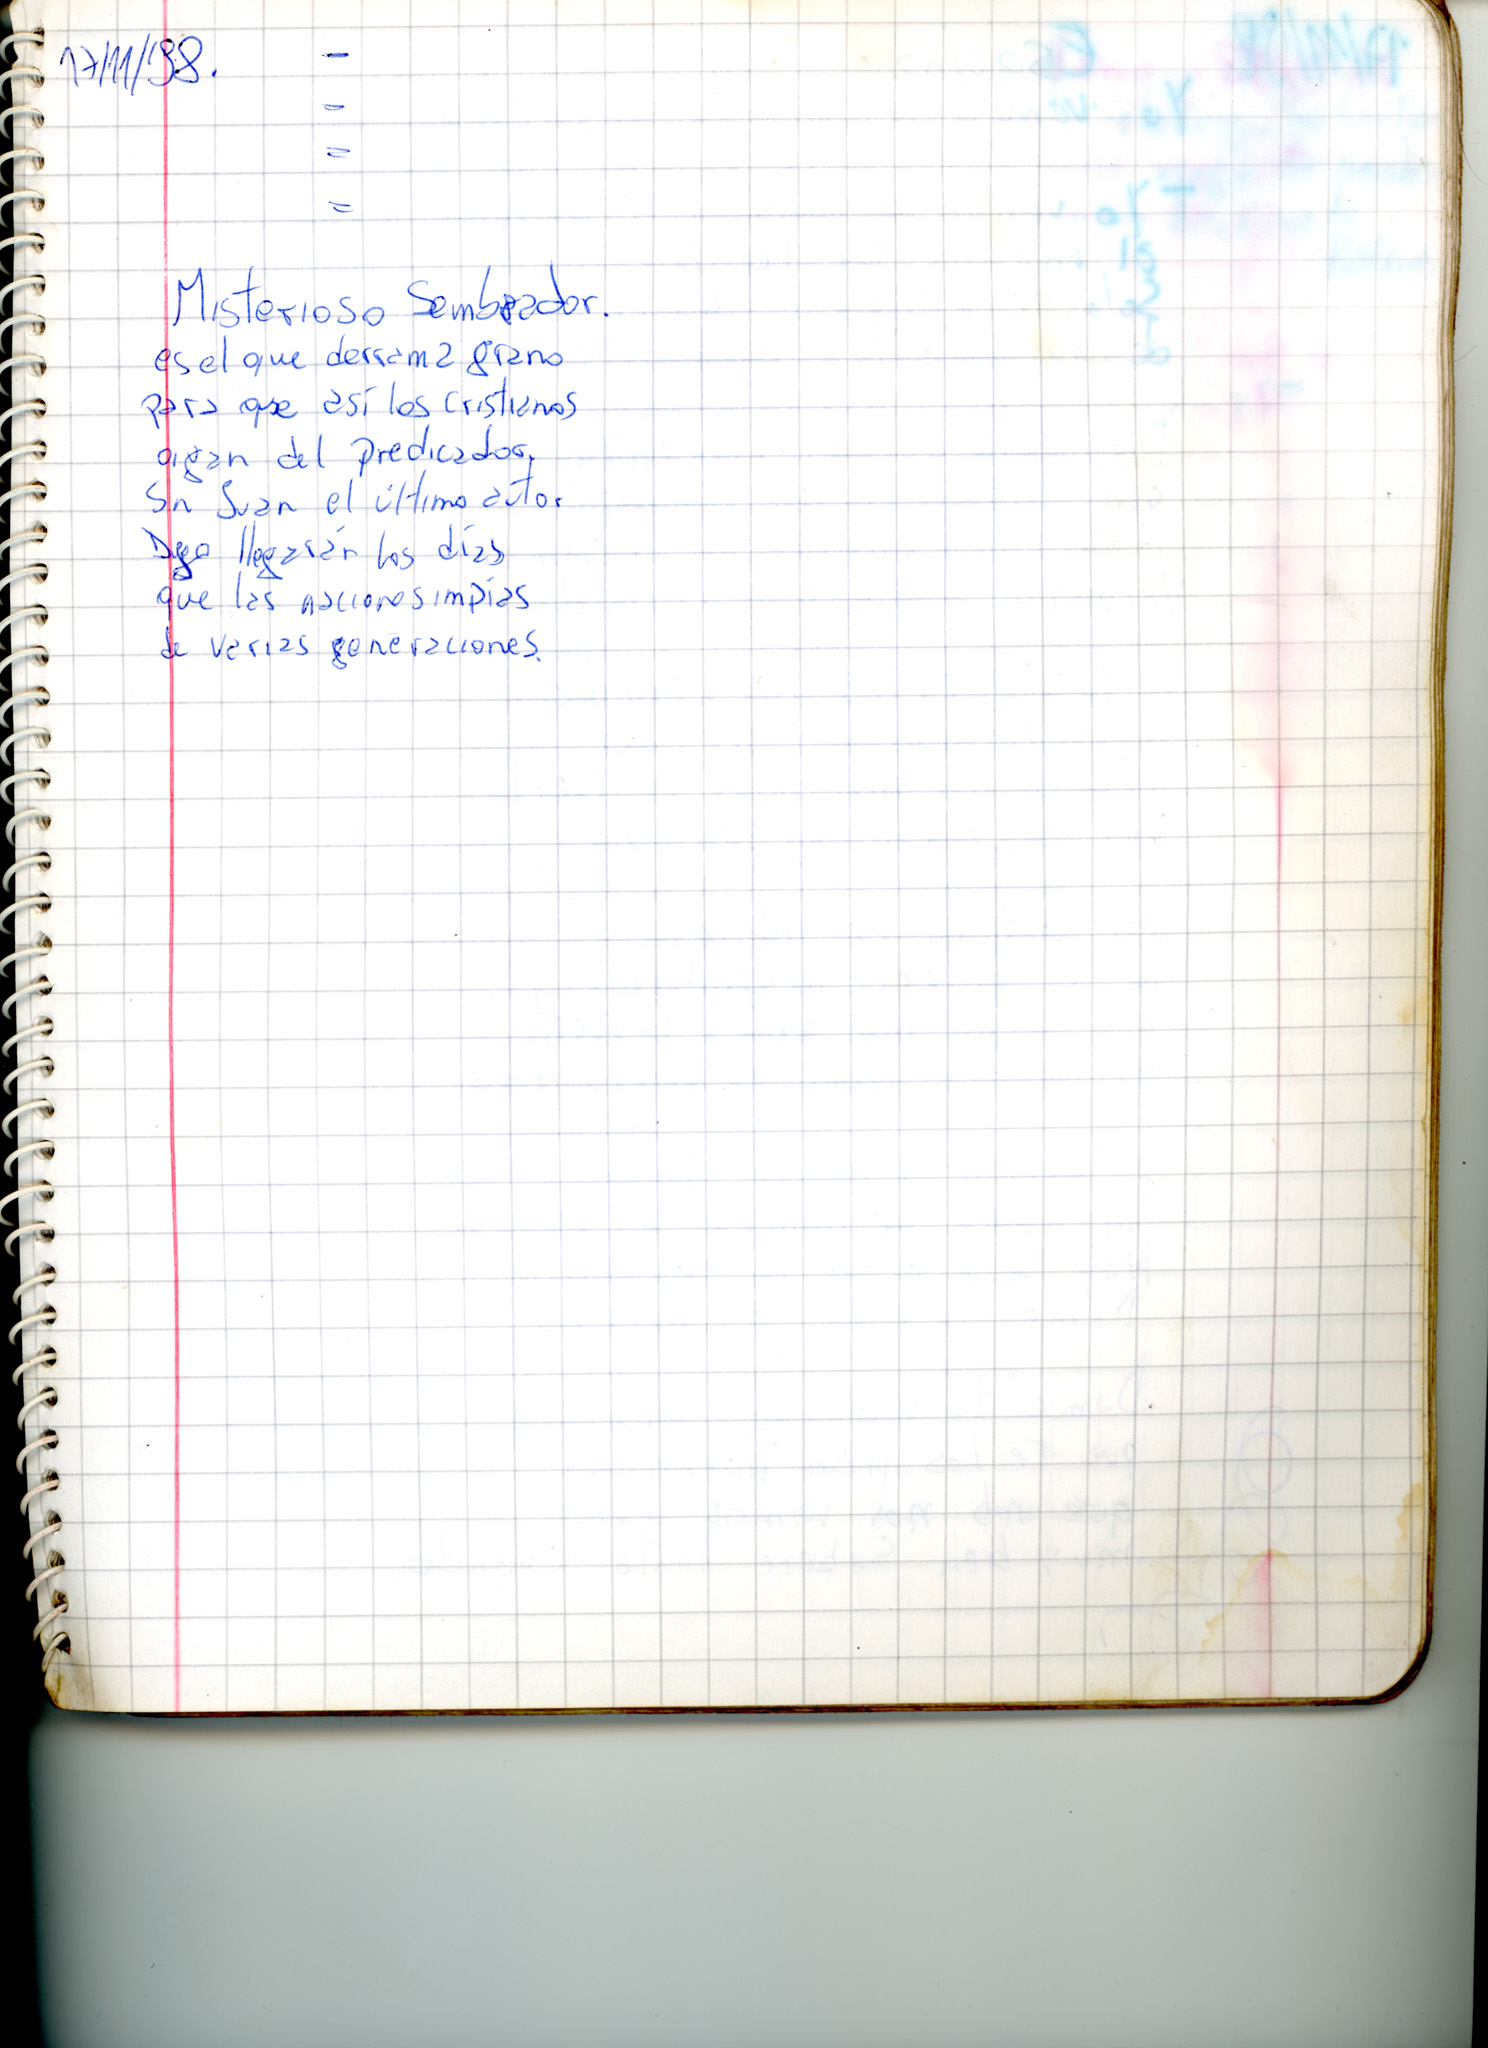 17/11/98.
-
=
=
=
Misterioso Sembrador.
es el que derrama grano
para que así los cristianos
oigan del predicador.
Sn Juan el último autor
Dijo llegarán los días
que las naciones impías
de varias generaciones.